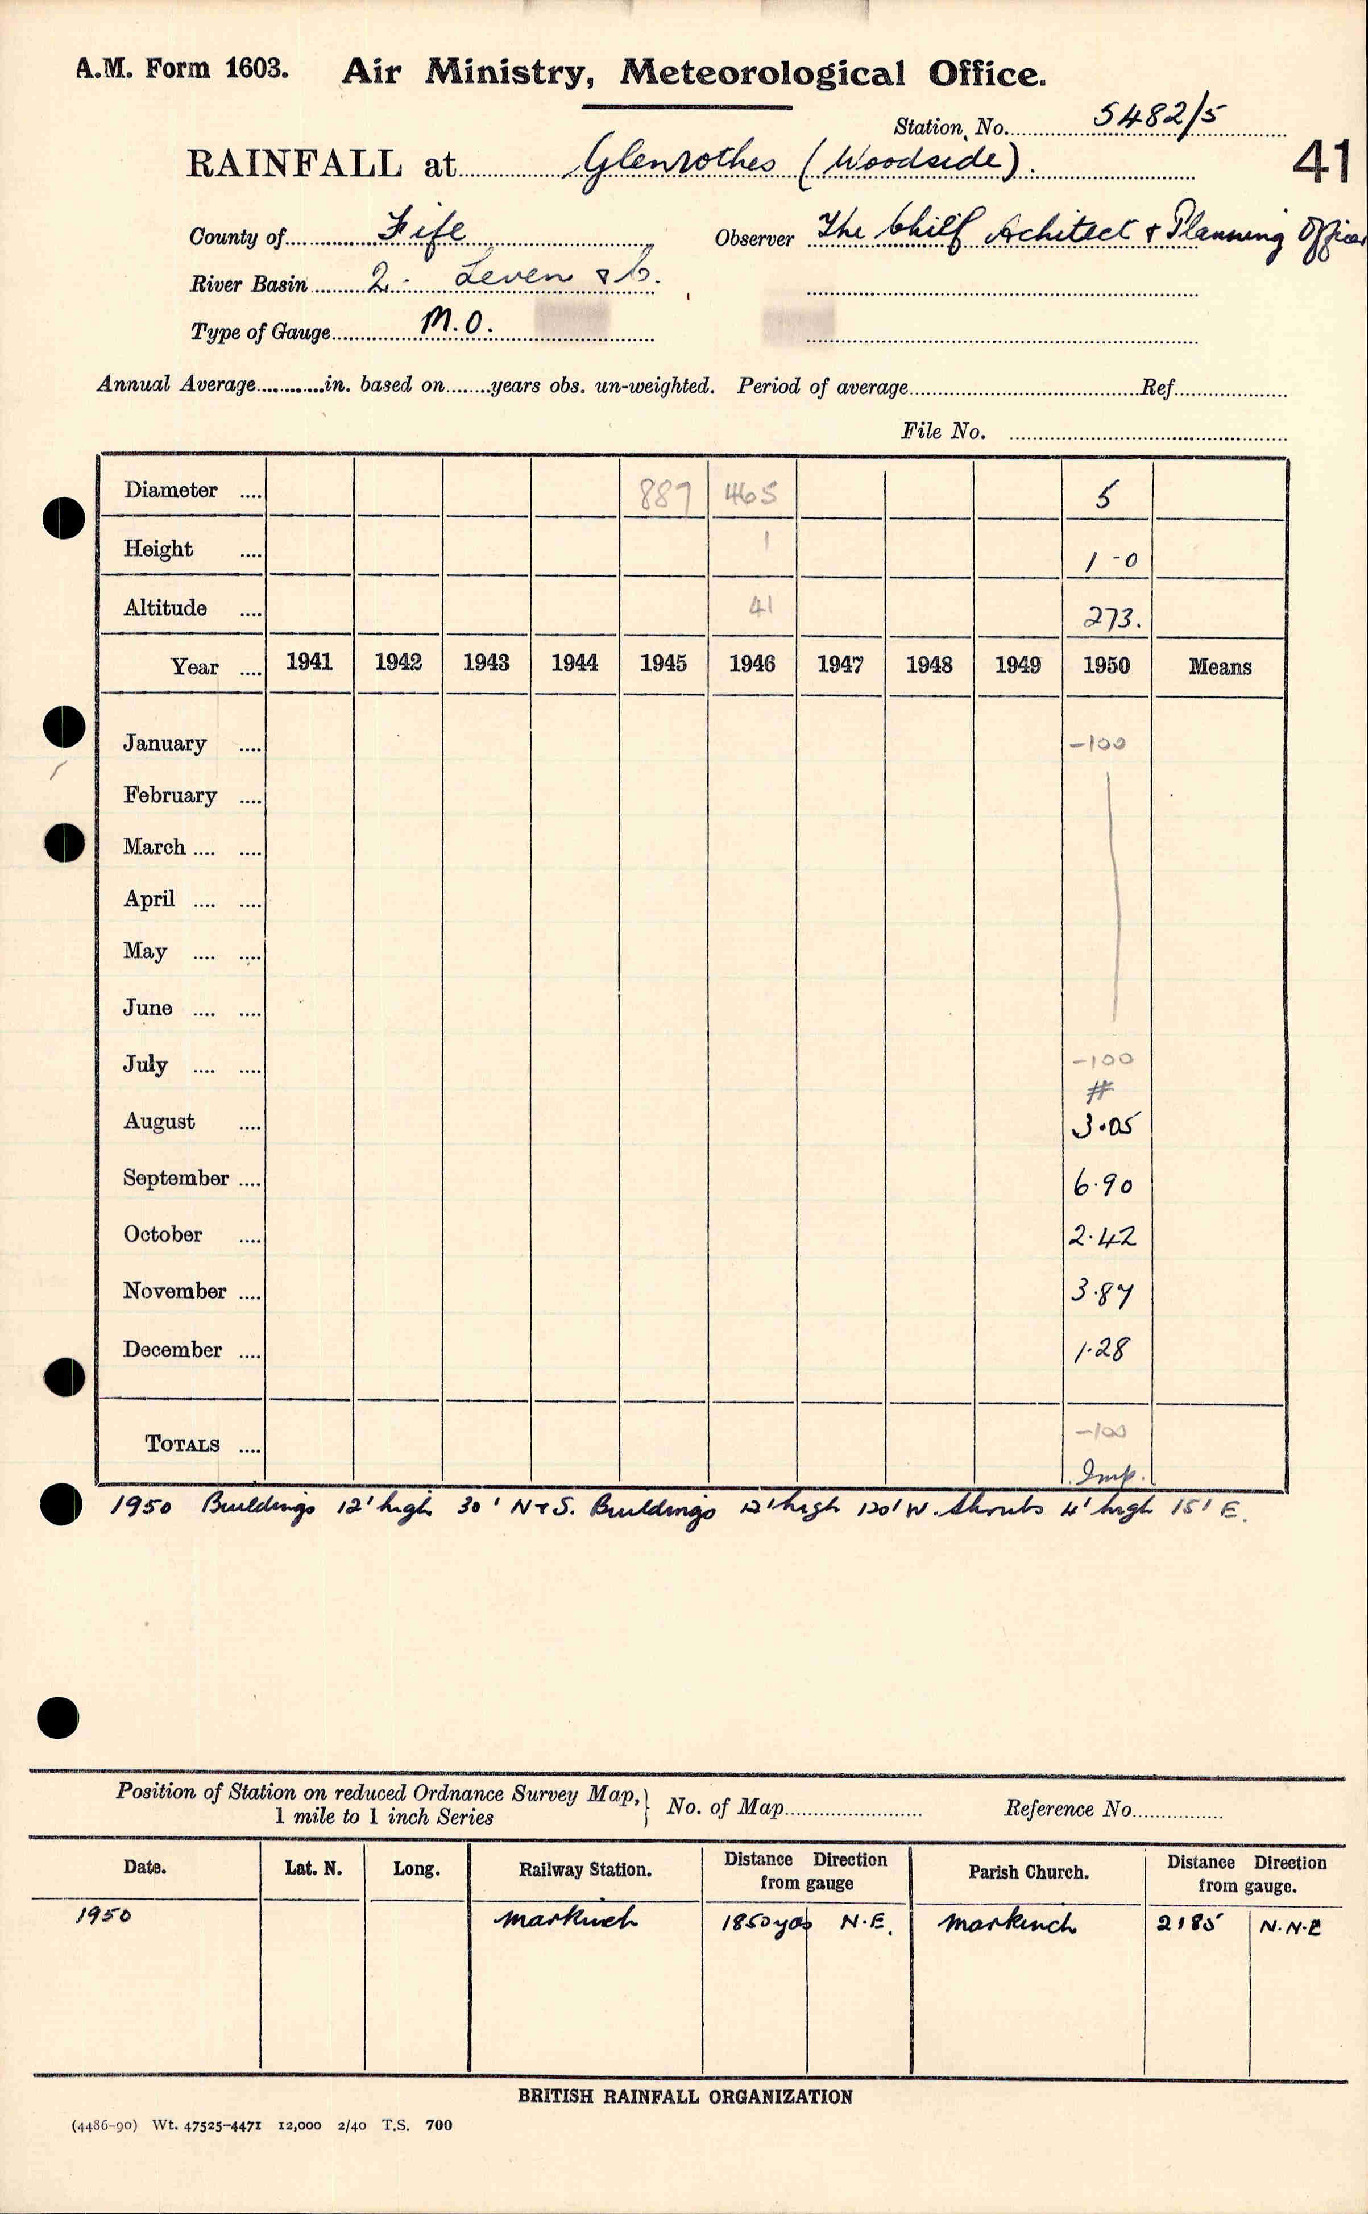 A.M. Form 1603. Air Ministry, Meteorological Office.
Station No. 5482/5
RAINFALL at Glenrothes (Woodside). 41
County of Fife Observer The Chief Architect & Planning Officer
River Basin 2. Leven &c.
Type of Gauge M.O.
Annual Average in. based on years obs. un-weighted. Period of average Ref.
File No.
Diameter .... 887 465 5
Height .... 1 1-0
Altitude .... 41 273.
Year .... 1941 1942 1943 1944 1945 1946 1947 1948 1949 1950 Means
January .... -100
February ....
March .... ....
April .... ....
May .... ....
June .... ....
July .... .... -100
#
August .... 3.05
September .... 6.90
October .... 2.42
November .... 3.87
December .... 1.28
TOTALS .... -100
Imp.
1950 Buildings 12' high 30' N & S. Buildings 12' high 120' W. Shrubs 4' high 15' E.
Position of Station on reduced Ordnance Survey Map,} No. of Map Reference No.
1 mile to 1 inch Series
Date. Lat. N. Long. Railway Station. Distance Direction from gauge Parish Church. Distance Direction from gauge.
1950 Markinch 1850 yds N.E. Markinch 2185 N.N.E
BRITISH RAINFALL ORGANIZATION
(4486-90) Wt. 47525-4471 12,000 2/40 T.S. 700